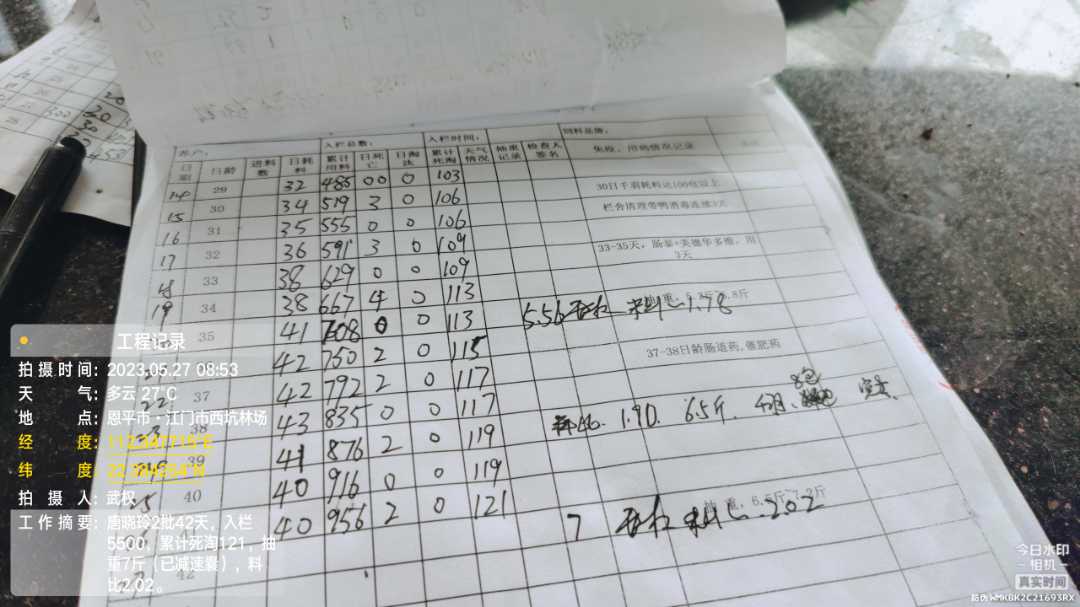 客户: 入栏总数: 入栏时间: 饲料品牌:
日期 日龄 进料数 日耗料 累计用料 日死亡 日淘汰 累计死淘 天气情况 抽重记录 检查人签名 免疫、用药情况记录
14 29 32 485 00 0 103
15 30 34 519 3 0 106 30日千羽耗料达100包以上
16 31 35 555 0 0 106 栏舍清理带鸭消毒连续3天
17 32 36 591 3 0 109
18 33 38 629 0 0 109 33-35天,肠泰+美德华多维,用3天
19 34 38 667 4 0 113
35 41 708 0 0 113 5.56 料比1.78
42 750 2 0 115 37-38日龄肠道药、催肥药
37 42 792 2 0 117
38 43 835 0 0 117 料比 1.90 6.5斤
39 41 876 2 0 119
40 40 916 0 0 119
40 956 2 0 121 7 料比 2.02
42
工程记录
拍摄时间: 2023.05.27 08:53
天气: 多云 27℃
地点: 恩平市·江门市西坑林场
经度:
纬度:
拍摄人: 武权
工作摘要: 唐晓玲2批42天,入栏
5500,累计死淘121,抽
重7斤(已减速囊),料
比2.02。
今日水印
相机
真实时间
防伪WMKBK2C21693RX